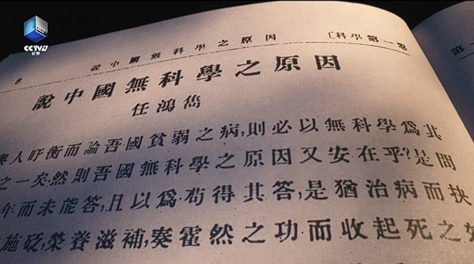 CCTV 9
纪录
8 說中國無科學之原因 [科學第一卷
第一
說中國無科學之原因
任鴻雋
人盱衡而論吾國貧弱之病,則必以無科學爲其
之一矣.然則吾國無科學之原因又安在乎?是問
年而未能答,且以爲苟得其答,是猶治病而抉
施砭,榮養滋補,奏霍然之功而收起死之